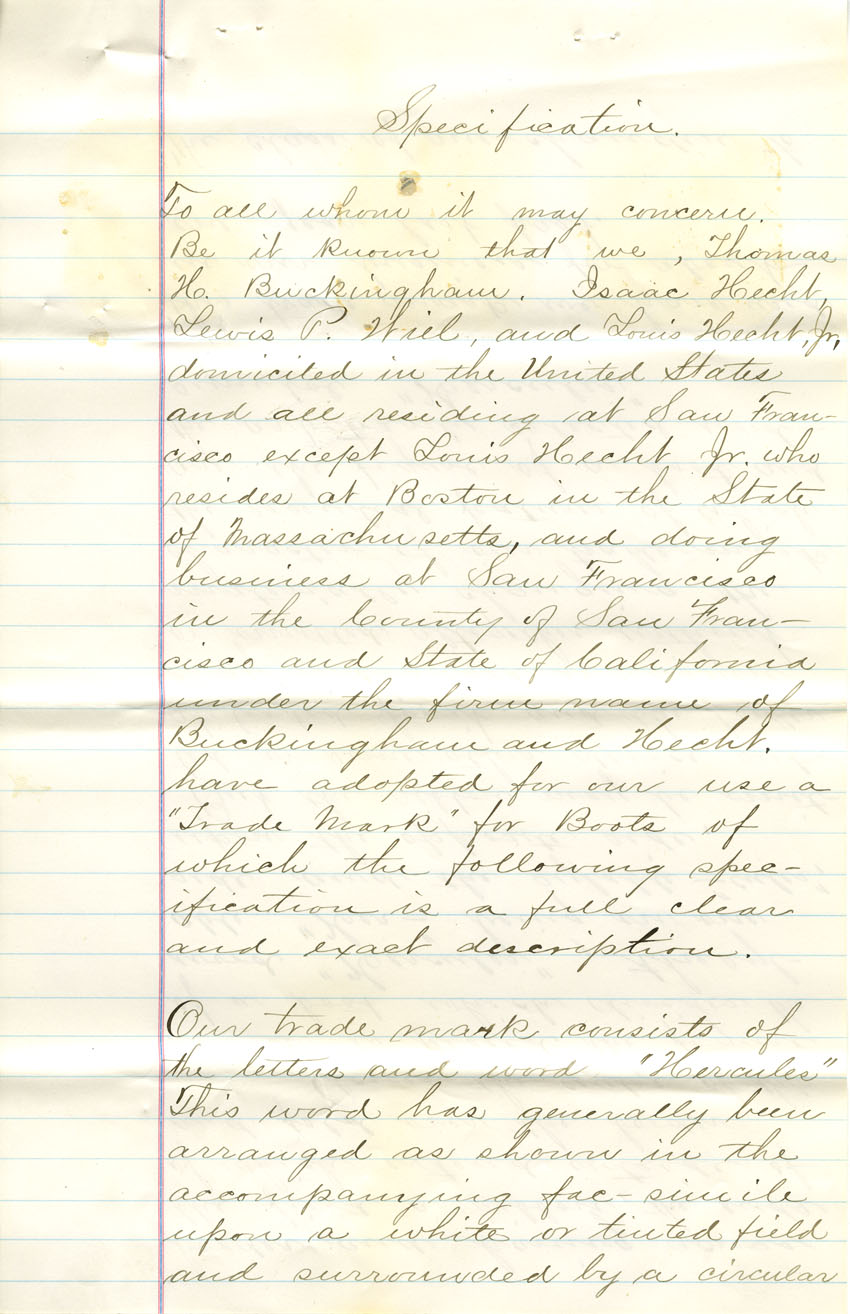 Specification.
To all whom it may concern.
Be it known that we, Thomas
H. Buckingham. Isaac Hecht,
Lewis P. Wiel, and Louis Hecht, Jr,
domiciled in the United States
and all residing at San Fran-
cisco except Louis Hecht Jr. who
resides at Boston in the State
of Massachusetts, and doing
business at San Francisco
in the County of San Fran-
cisco and State of California
under the firm name of
Buckingham and Hecht.
have adopted for our use a
"Trade Mark" for Boots of
which the following spec-
ification is a full clear
and exact description.
Our trade mark consists of
the letters and word "Hercules"
This word has generally been
arranged as shown in the
accompanying fac-simile
upon a white or tinted field
and surrounded by a circular